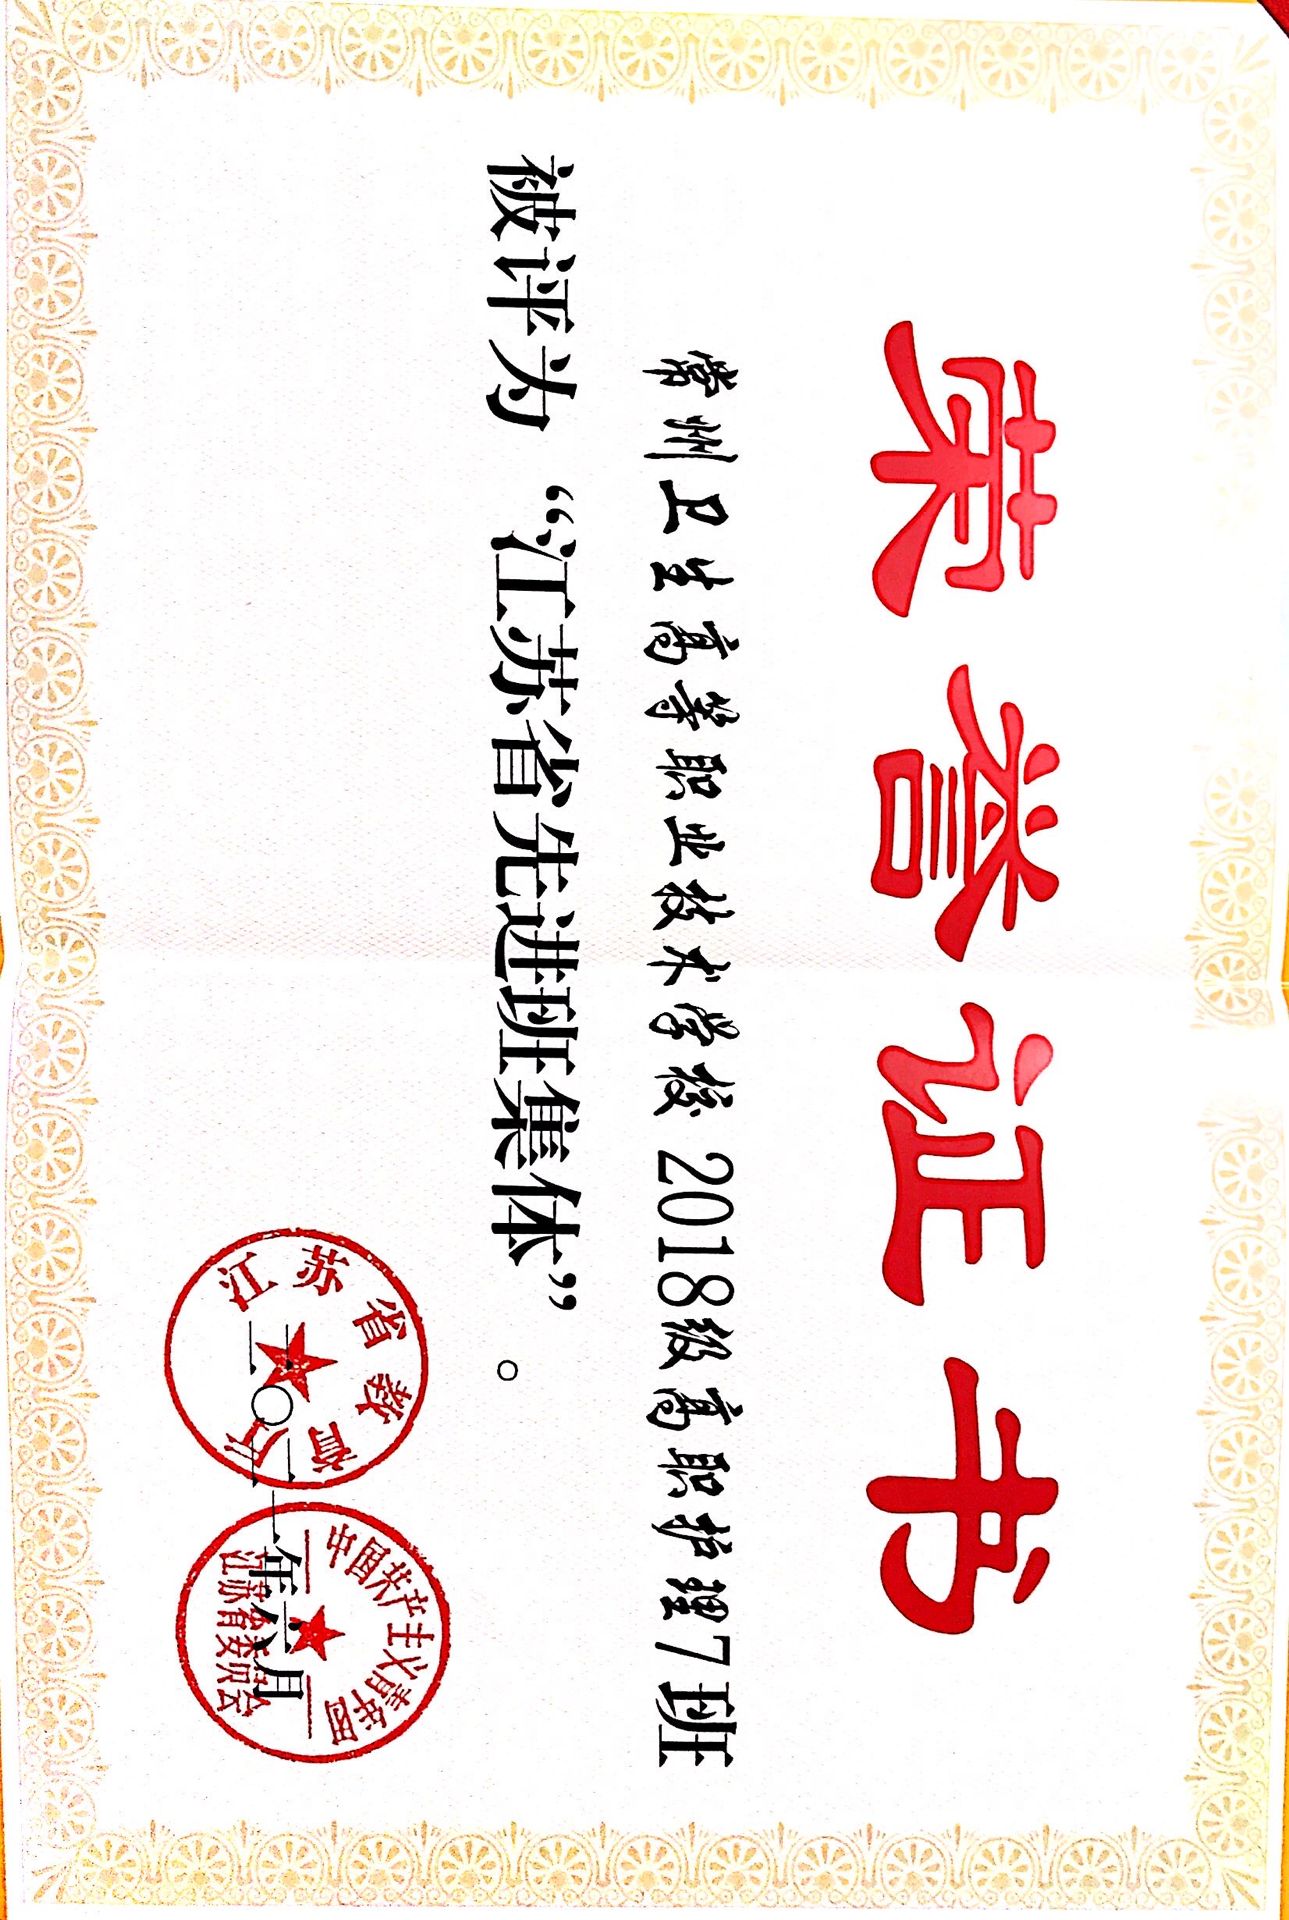 荣誉证书
常州卫生高等职业技术学校2018级高职护理7班
被评为“江苏省先进班集体”。
江苏省教育厅
中国共产主义青年团
江苏省委员会
二〇二一年六月